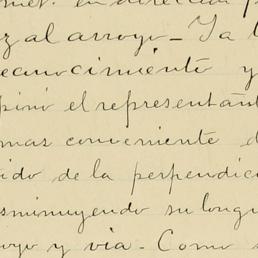 en dirección
z al arroyo - Ya
econocimiento y
pinó el representant
mas conveniente d
ido de la perpendic
sminuyendo su longi
oyo y via. Como